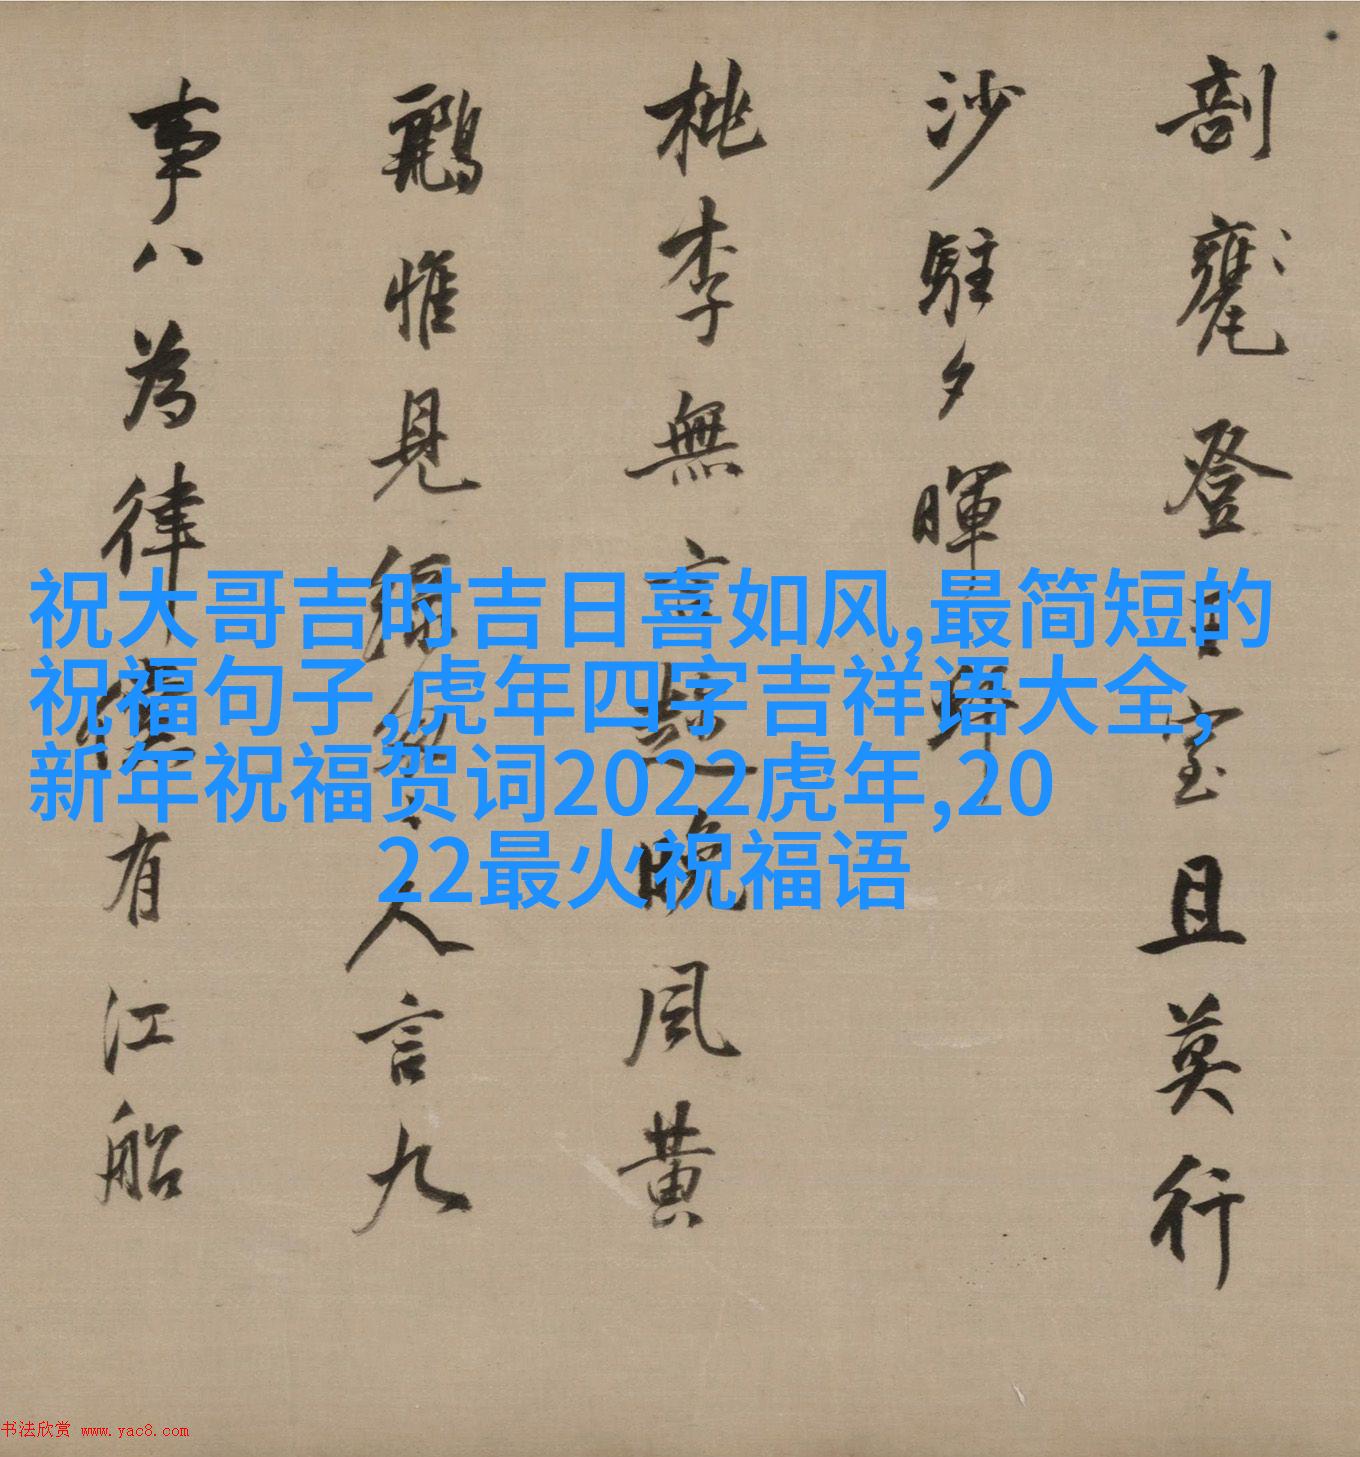 剖甕登室且莫行
沙駐夕暉
桃李無言晚風黃
鸝惟見綠人言九
事八為律有江船
祝大哥吉时吉日喜如风,最简短的
祝福句子,虎年四字吉祥语大全,
新年祝福贺词2022虎年,20
22最火祝福语
书法欣赏 www.yac8.com